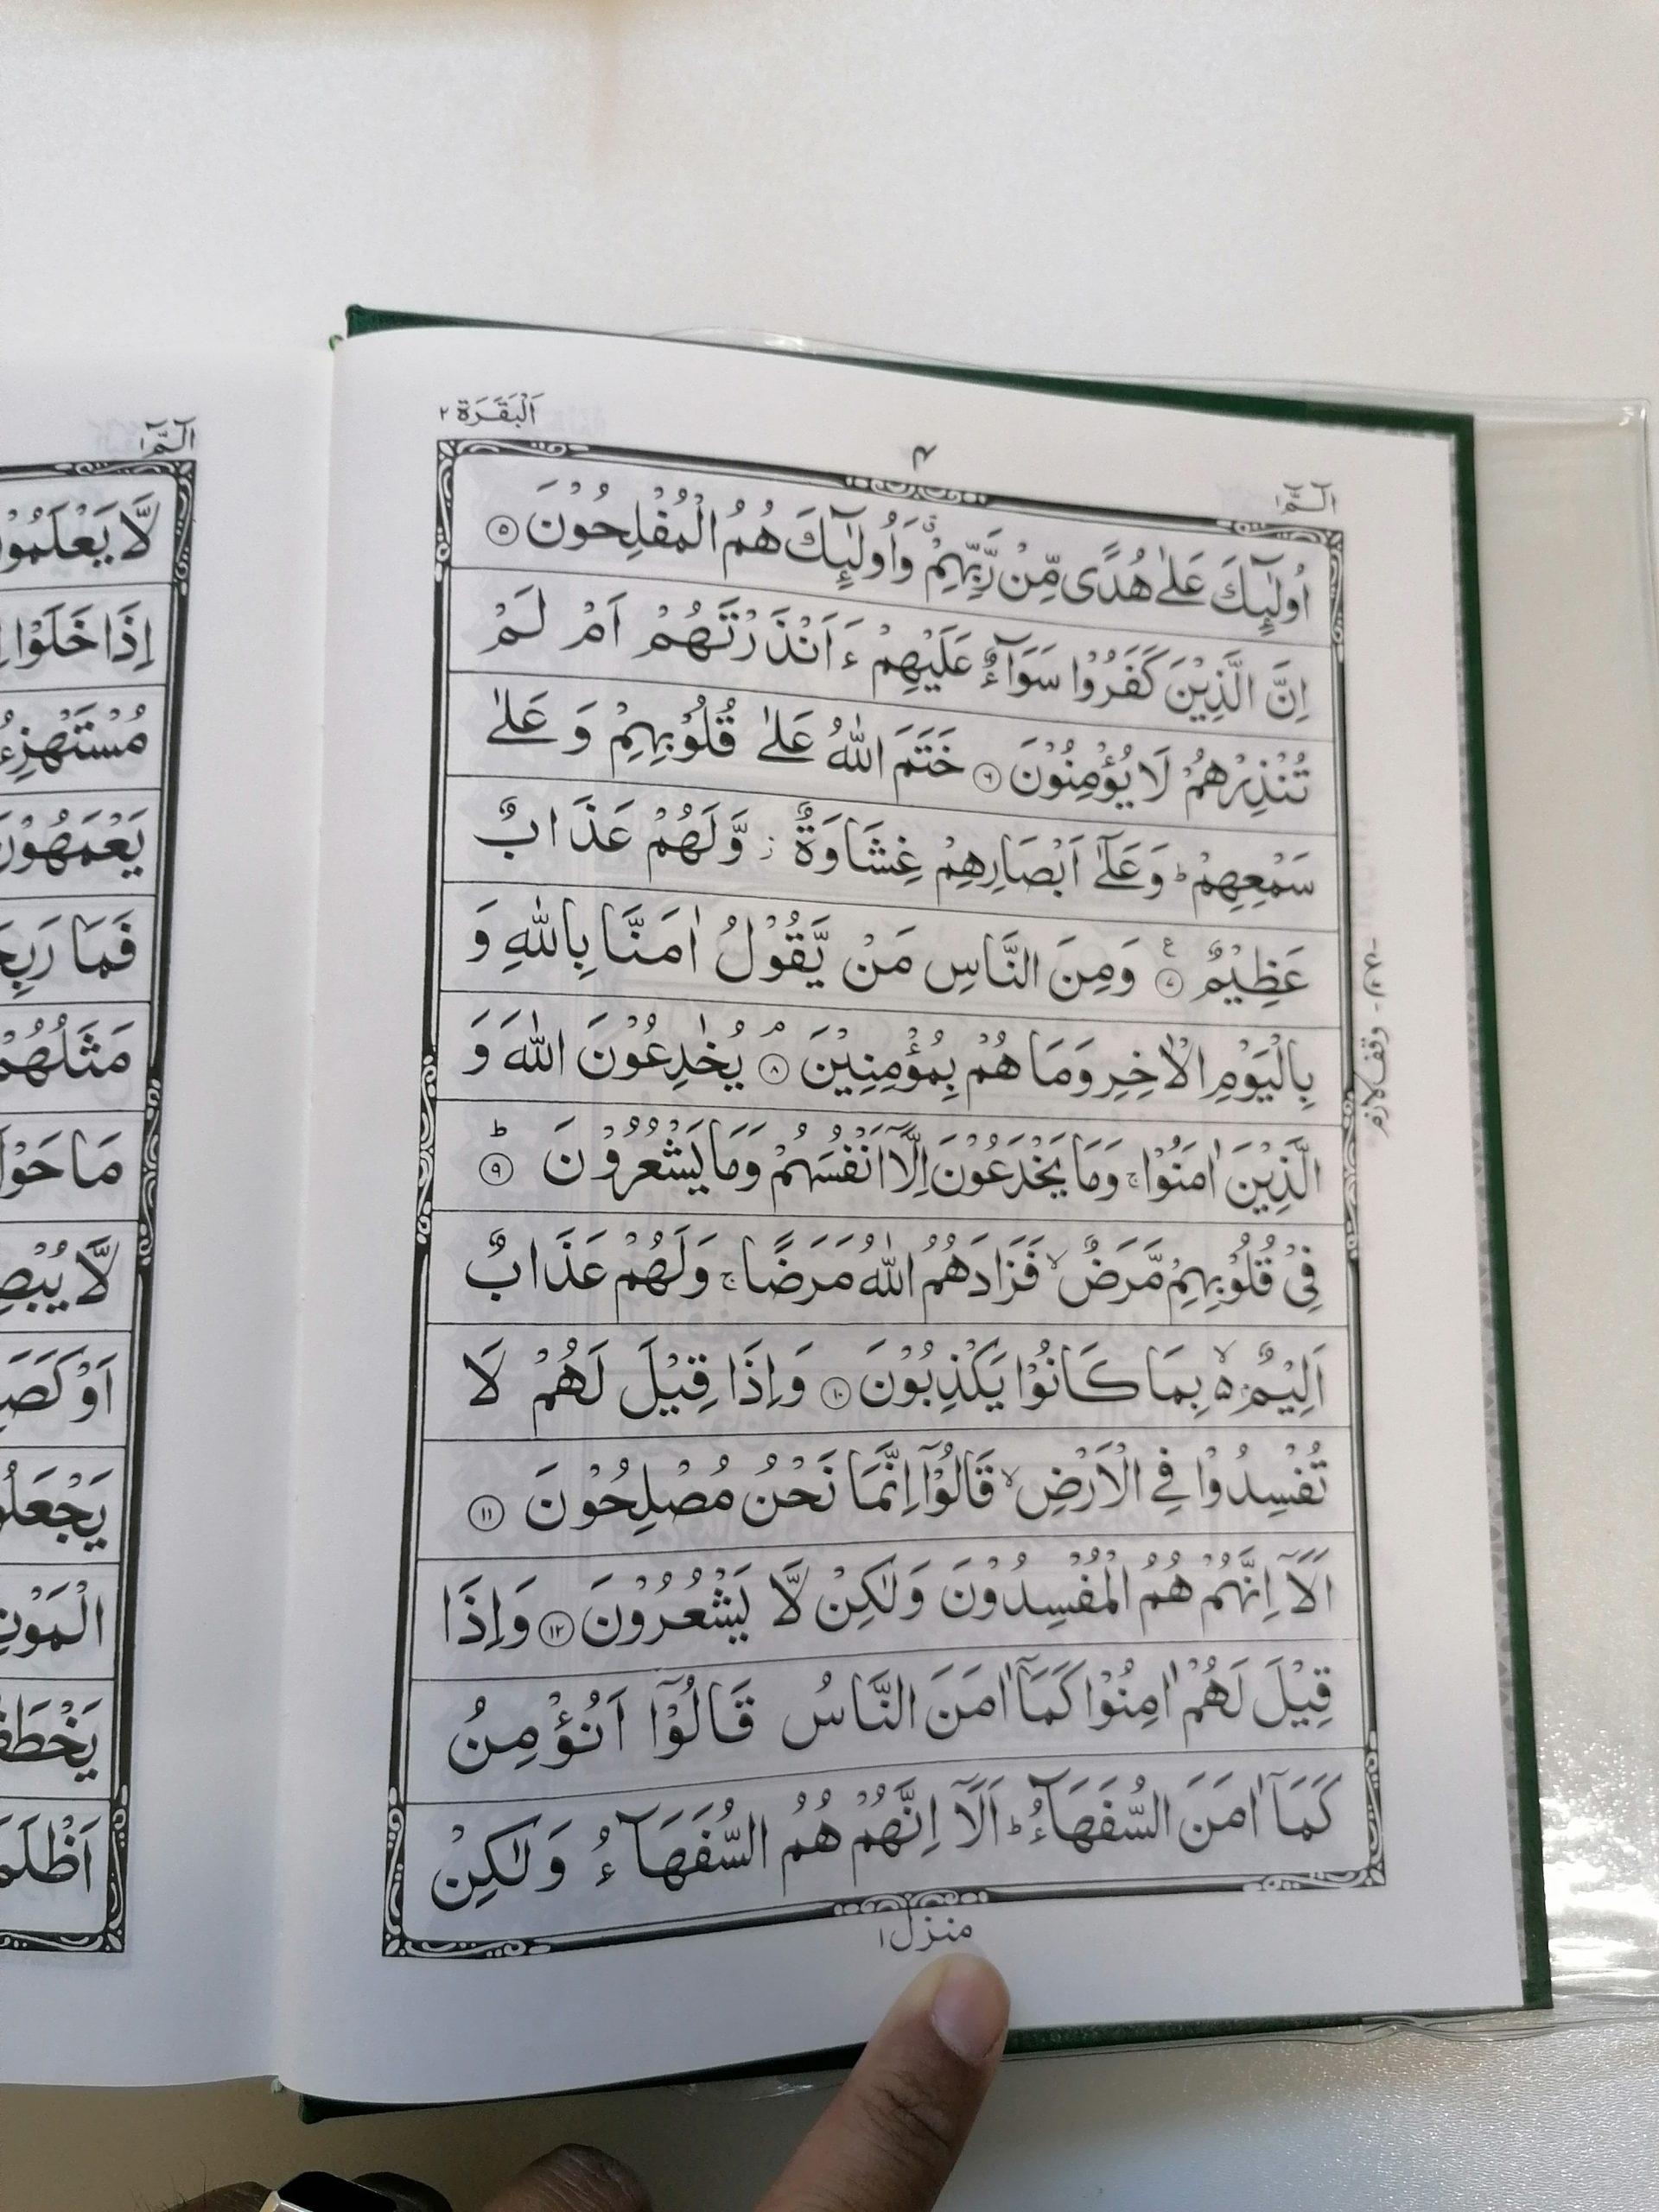 الٓمّٓ ١
٤
اَلْبَقَرَة ٢
اُولٰٓئِكَ عَلٰى هُدًى مِّنْ رَّبِّهِمْ ۗ وَاُولٰٓئِكَ هُمُ الْمُفْلِحُوْنَ ۝٥
اِنَّ الَّذِيْنَ كَفَرُوْا سَوَآءٌ عَلَيْهِمْ ءَاَنْذَرْتَهُمْ اَمْ لَمْ
تُنْذِرْهُمْ لَا يُؤْمِنُوْنَ ۝٦ خَتَمَ اللّٰهُ عَلٰى قُلُوْبِهِمْ وَ عَلٰى
سَمْعِهِمْ ؕ وَعَلٰٓى اَبْصَارِهِمْ غِشَاوَةٌ ز وَّلَهُمْ عَذَابٌ
عَظِيْمٌ ۝٧ ع وَمِنَ النَّاسِ مَنْ يَّقُوْلُ اٰمَنَّا بِاللّٰهِ وَ
بِالْيَوْمِ الْاٰخِرِ وَمَا هُمْ بِمُؤْمِنِيْنَ ۝٨ۘ يُخٰدِعُوْنَ اللّٰهَ وَ
الَّذِيْنَ اٰمَنُوْا ۚ وَمَا يَخْدَعُوْنَ اِلَّآ اَنْفُسَهُمْ وَمَا يَشْعُرُوْنَ ۝٩ؕ
فِيْ قُلُوْبِهِمْ مَّرَضٌ ۙ فَزَادَهُمُ اللّٰهُ مَرَضًا ۚ وَلَهُمْ عَذَابٌ
اَلِيْمٌۢ ۙ۬ ۵ بِمَا كَانُوْا يَكْذِبُوْنَ ۝١٠ وَاِذَا قِيْلَ لَهُمْ لَا
تُفْسِدُوْا فِي الْاَرْضِ ۙ قَالُوْٓا اِنَّمَا نَحْنُ مُصْلِحُوْنَ ۝١١
اَلَآ اِنَّهُمْ هُمُ الْمُفْسِدُوْنَ وَلٰكِنْ لَّا يَشْعُرُوْنَ ۝١٢ وَاِذَا
قِيْلَ لَهُمْ اٰمِنُوْا كَمَآ اٰمَنَ النَّاسُ قَالُوْٓا اَنُؤْمِنُ
كَمَآ اٰمَنَ السُّفَهَآءُ ؕ اَلَآ اِنَّهُمْ هُمُ السُّفَهَآءُ وَلٰكِنْ
منزل ١
وقف لازم
الٓمّٓ ١
لَّا يَعْلَمُو
اِذَا خَلَوْا
مُسْتَهْزِءُ
يَعْمَهُوْنَ
فَمَا رَبِحَ
مَثَلُهُمْ
مَا حَوْلَ
لَّا يُبْصِ
اَوْ كَصَ
يَجْعَلُو
الْمَوْتِ
يَخْطَفُ
اَظْلَمَ